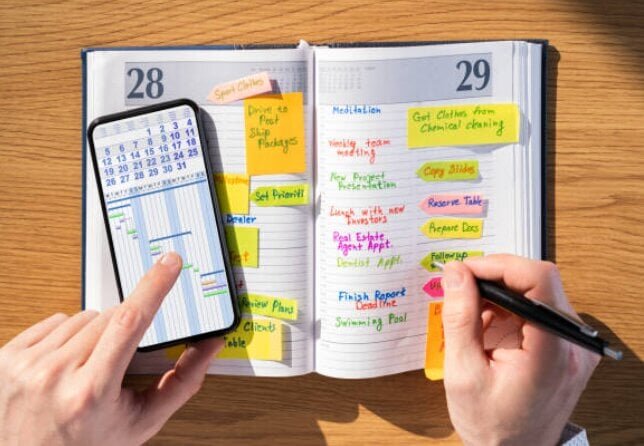 28
Sport Clothes
Drive to
Post
Ship
Packages
Set Prioriti
Dealer
Review Plans
Clients
Table
1 2 3 4
5 6 7 8 9 10 11
12 13 14 15 16 17 18
19 20 21 22 23 24 25
26 27 28 29 30 31
29
Meditation
Get Clothes from
Chemical cleaning
Weekly team
meeting
Copy Slides
New Project
Presentation
Reserve Table
Lunch with new
Investors
Prepare Docs
Real Estate
Agent Appt.
Dentist Appt.
Follow up
Finish Report
Deadline
Swimming Pool